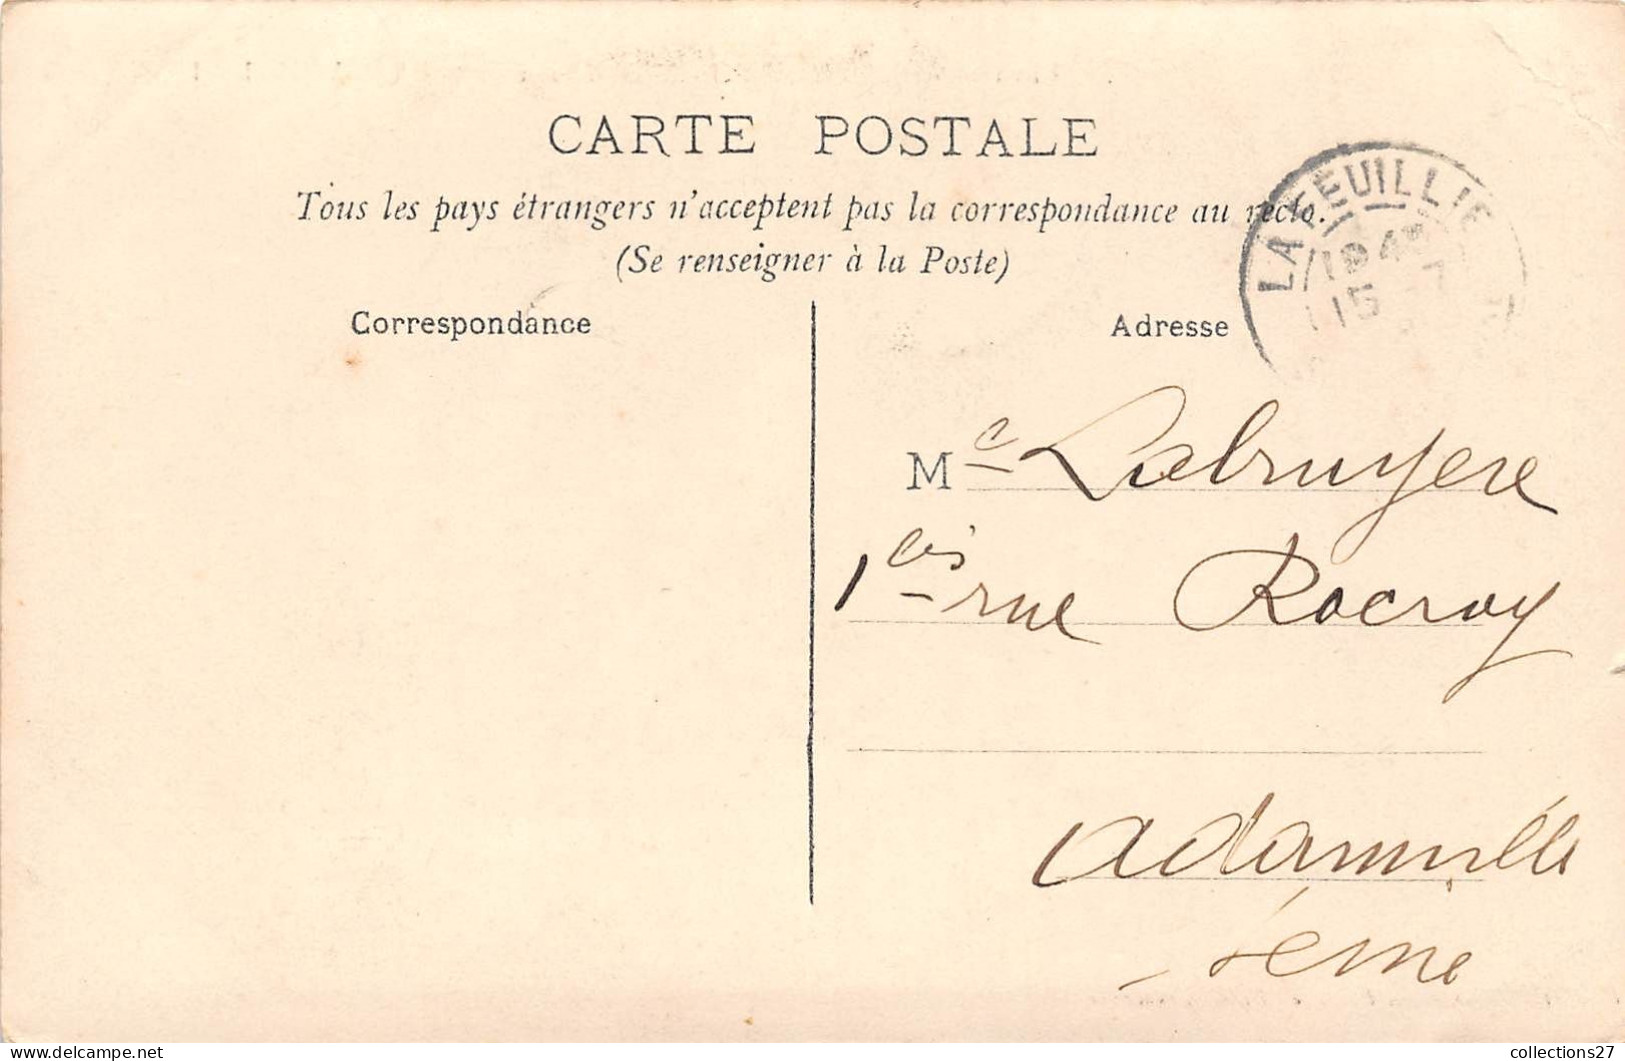 CARTE POSTALE
Tous les pays étrangers n'acceptent pas la correspondance au recto.
(Se renseigner à la Poste)
LA FEUILLIE
15
Correspondance
Adresse
Me Labruyere
1 bis rue Rocroy
Adamville
Seine
collections27